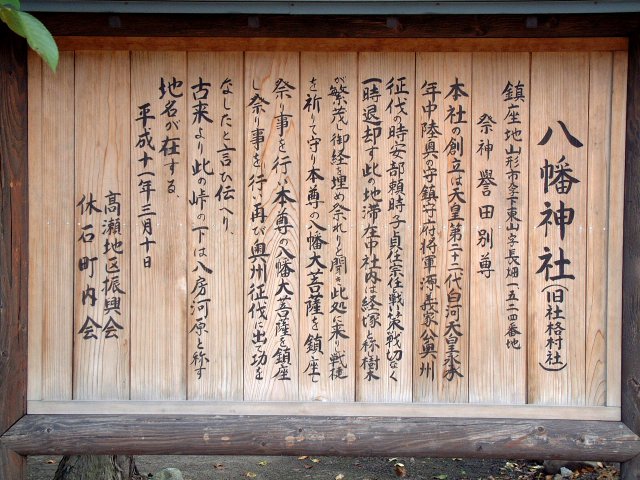 八幡神社(旧社格村社)
鎮座地山形市大字下東山字長畑一、五二四番地
祭神 誉田別尊
本社の創立は天皇第二十二代白河天皇永承
年中陸奥の守鎮守府将軍源義家公奥州
征伐の時安部頼時子貞任宗任戦い策戦切なく
一時退却す此の地滞在中社内は経塚と称樹木
が繁茂し御経を埋め祭れりと聞き此処に来り戦徒
を祈りて守り本尊の八幡大菩薩を鎮座し
祭り事を行い本尊の八幡大菩薩を鎮座
し祭り事を行い再び奥州征伐に出て功を
なしたと言ひ伝へり、
古来より此の峠の下は八房河原と称す
地名が在する、
平成十一年三月十日
高瀬地区振興会
休石町内会